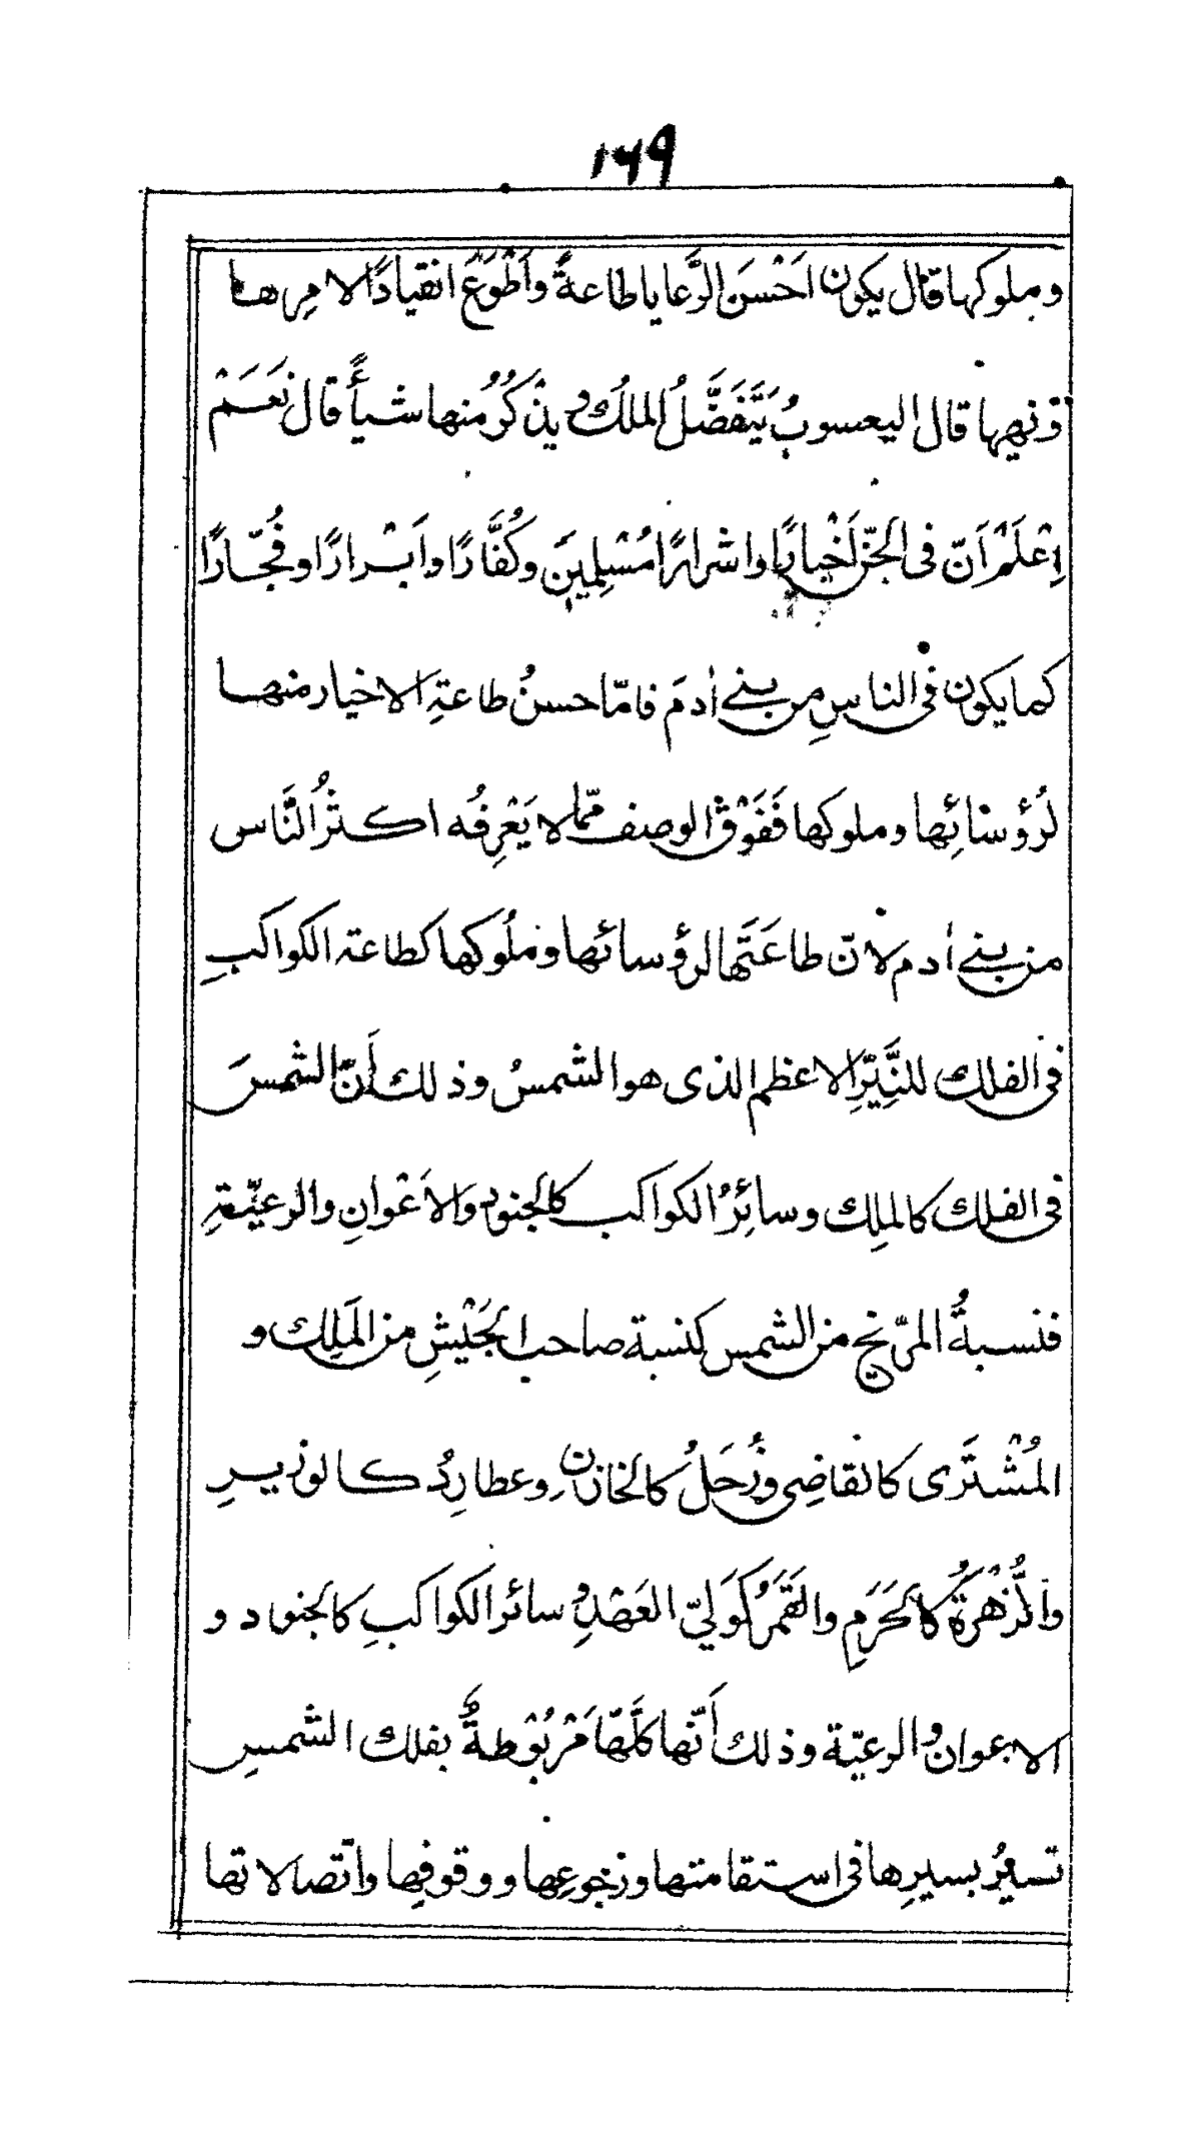 ١٦٩
وملوكها قال يكون اَحْسَنَ الرَّعايا طاعةً واَطْوَعَ انقيادًا لامرِها
ونهيها قال اليعسوبُ يَتَفَضَّلُ الملكُ ويذْكُرُ منها شيأً قال نَعَمْ
اِعْلَمْ اَنّ فى الجنّ اَخْيارًا واشرارًا مُسْلِمِينَ وكُفَّارًا واَبْرارًا وفُجّارًا
كما يكون فى الناسِ من بنے اٰدمَ فامّا حسنُ طاعةِ الاخيار منها
لرُؤسائِها وملوكها فَفَوْقَ الوصف ممّا لا يَعْرِفُه اكثرُ النَّاس
من بنے اٰدم لانّ طاعَتَها لرؤسائها وملُوكها كطاعة الكواكبِ
فى الفلك للنَّيِّرِ الاعظم الذى هو الشمسُ وذلك أَنّ الشمسَ
فى الفلك كالملِك وسائِرُ الكواكب كالجنودِ والاَعْوانِ والرعيّةِ
فنسبةُ المرّيخ من الشمس كنسبة صاحب الجَيْشِ من المَلِك و
المُشْتَرى كالقاضِى وزُحَلُ كالخازنِ وعطارِدُ كالوزيرِ
والزُّهْرَةُ كالحَرَمِ والقَمَرُ كَوَلِىّ العَهْدِ وسائر الكواكبِ كالجنود و
الاعوان والرعيّة وذلك أَنّها كلَّها مَرْبُوْطةٌ بفلك الشمسِ
تسيرُ بسيرِها فى استقامتها ورجوعِها ووقوفِها واتّصالاتها